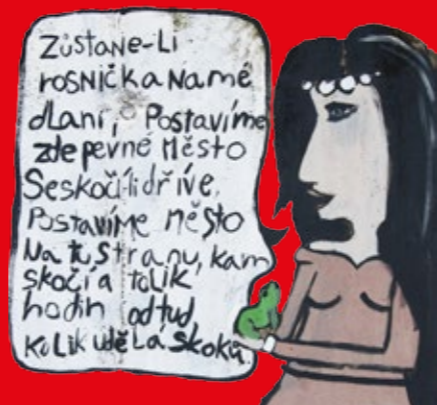 Zůstane-li
rosnička na mé
dlani, Postavíme
zde pevné Město
Seskočí-li dříve,
Postavíme město
Na tu stranu, kam
skočí a tolik
hodin odtud
kolik udělá skoků.